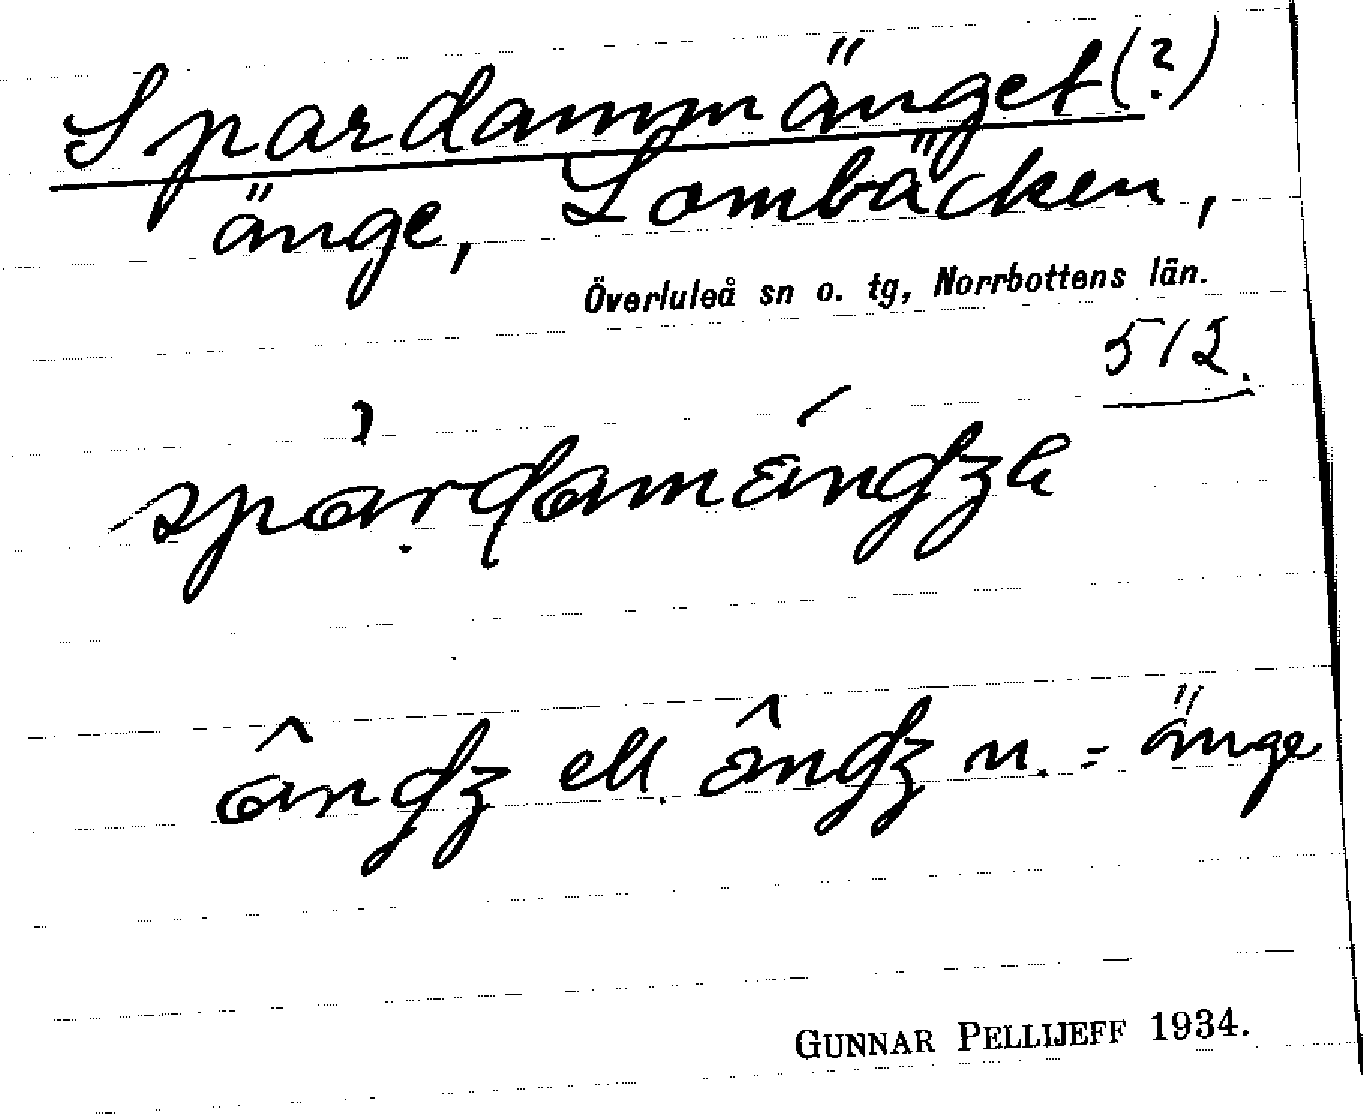 Spardammänget (?)
änge, Lombäcken,
Överluleå sn o. tg, Norrbottens län.
512.
ell. n. = änge
GUNNAR PELLIJEFF 1934.